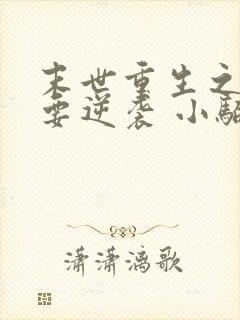 末世重生之
要逆袭 小骀
潇潇漓歌